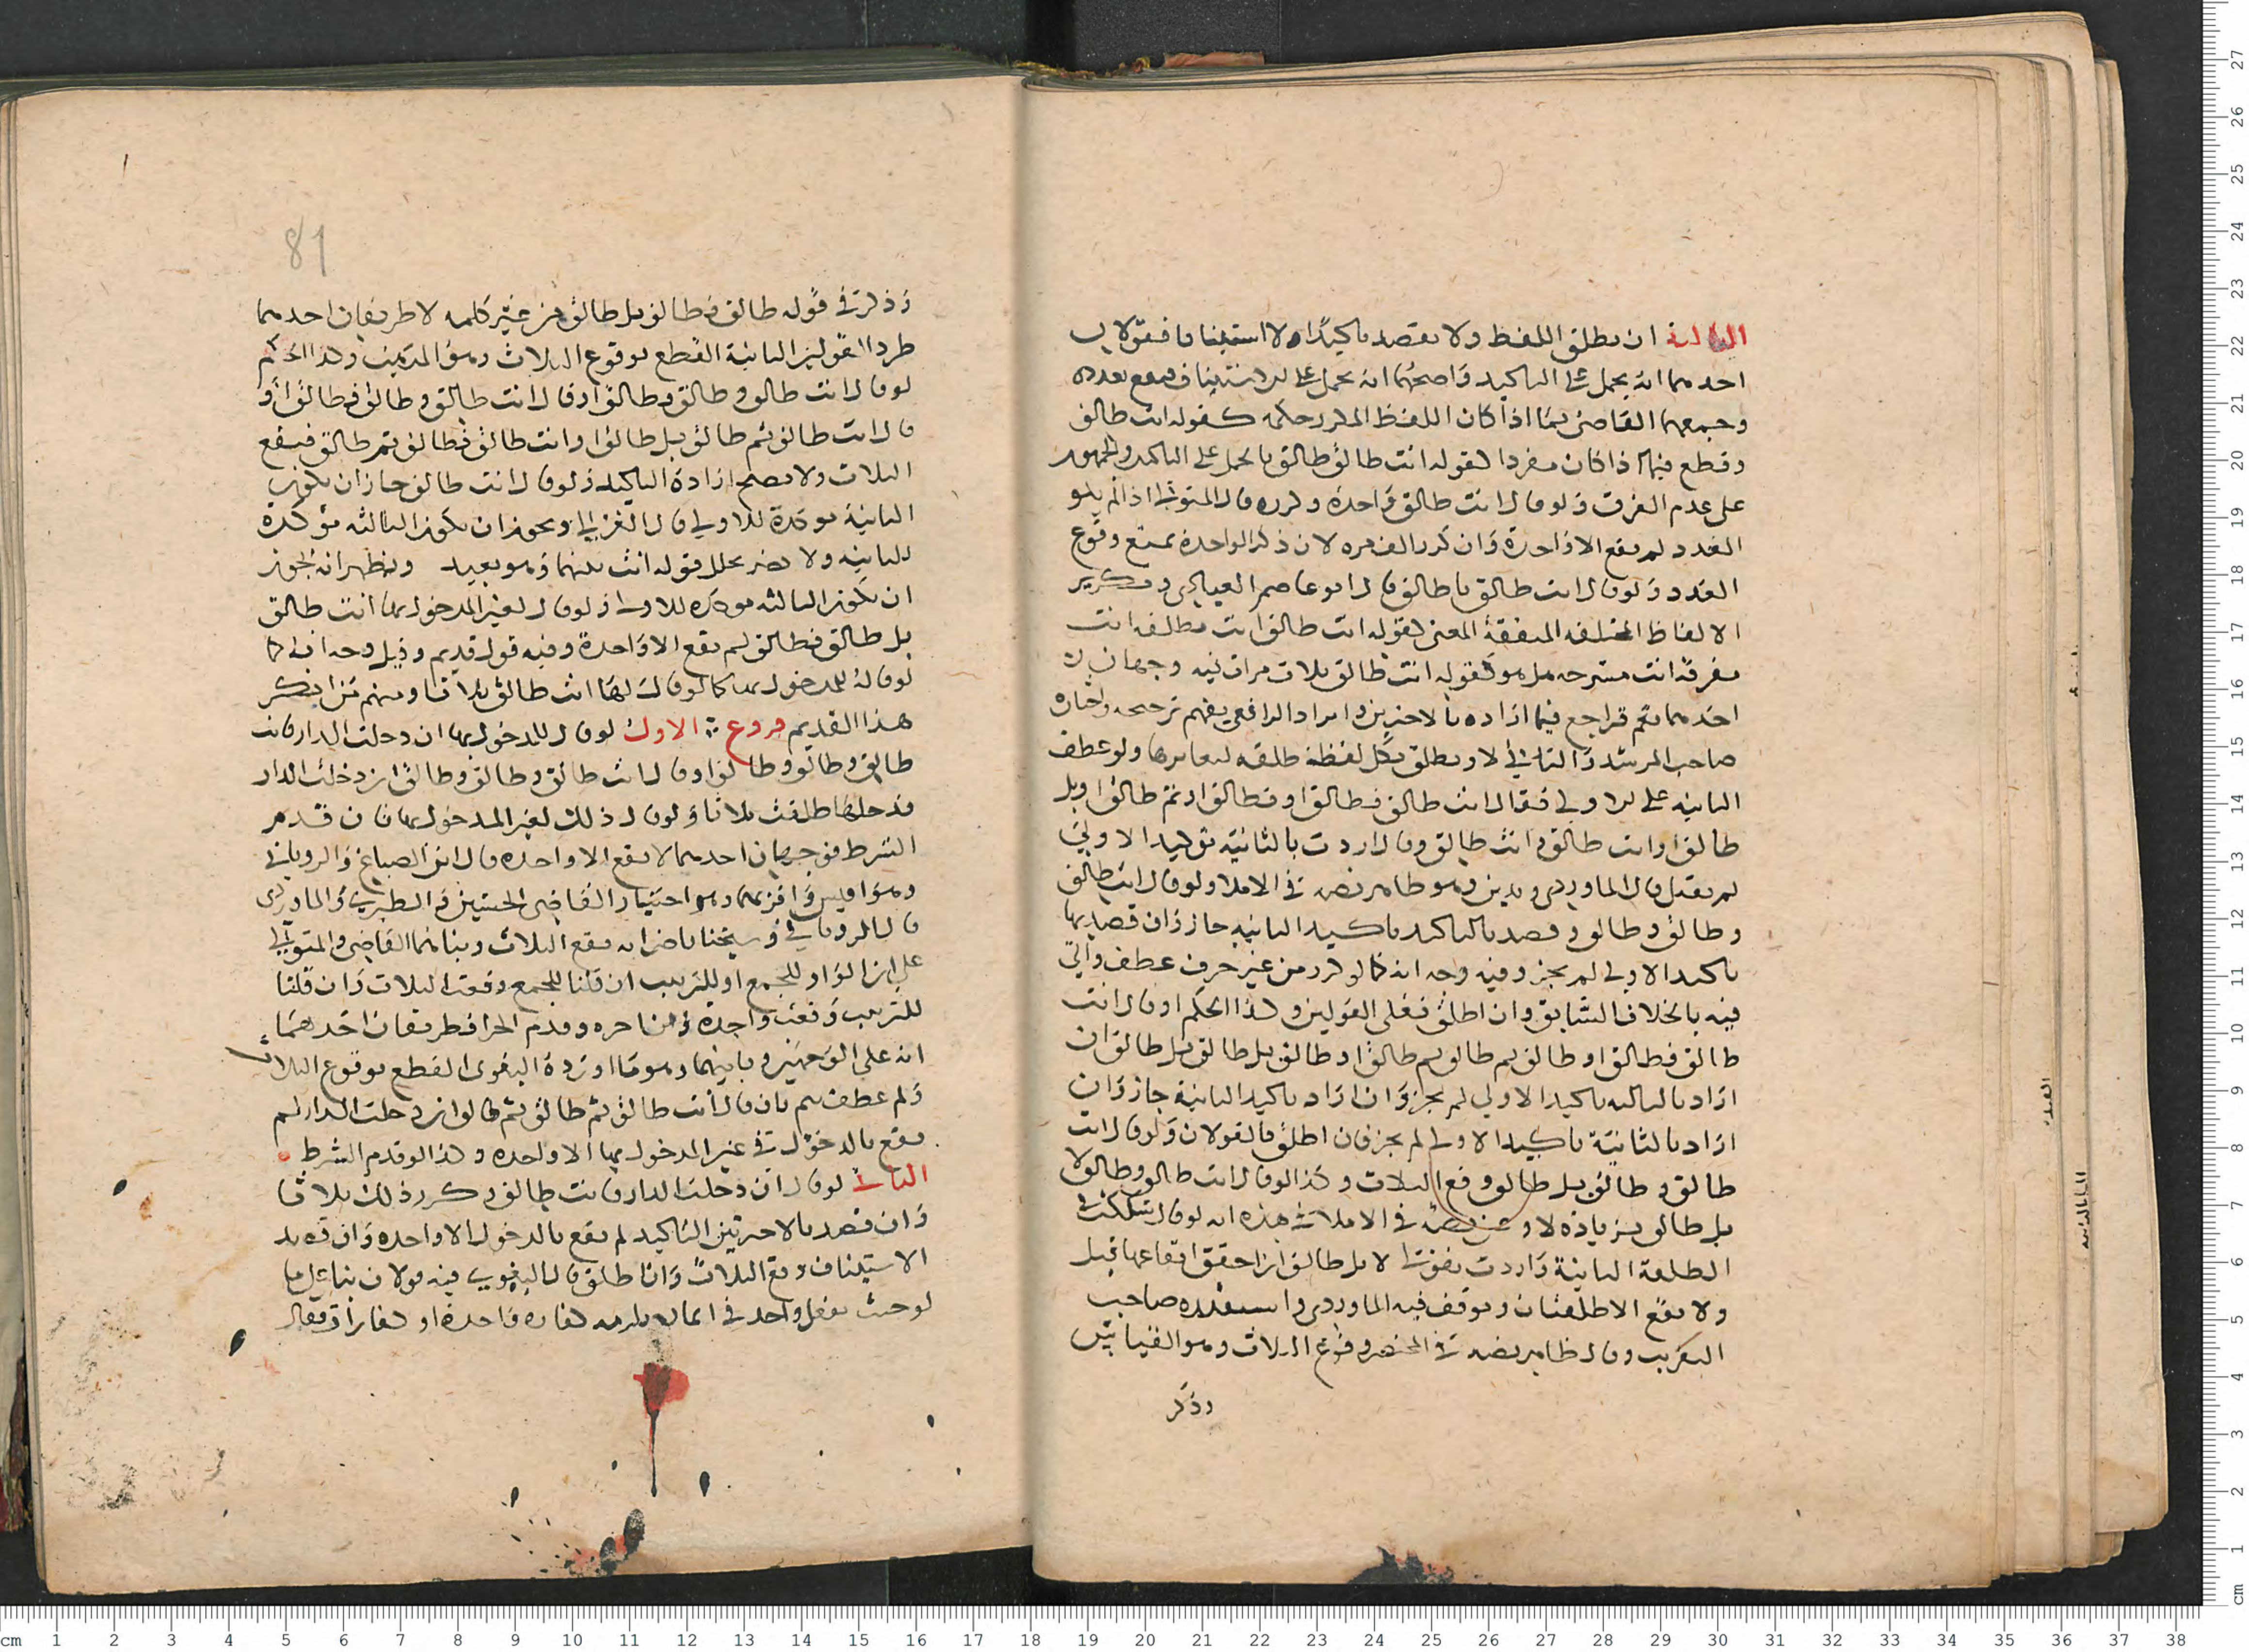 الثالثة ان يطلق اللفظ ولا يقصد تاكيدا ولا استينافا فقولان
احدهما انه يحمل على التاكيد واصحهما انه يحمل على الاستيناف فيقع بعدده
وجمعهما القاضي بما اذا كان اللفظ المكرر حكمه كقوله انت طالق
وقطع فيما اذا كان مفردا كقوله انت طالق طالق بالحمل على التاكيد والجمهور
على عدم الفرق ولو قال انت طالق واحدة وكرره قال المتولي اذا لم ينو
العدد لم يقع الا واحدة وان كرر الف مره لان ذكر الواحدة يمنع وقوع
العدد ولو قال انت طالق يا طالق قال ابو عاصم العبادي وتكرير
الالفاظ المختلفه المتفقة المعنى كقوله انت طالق انت مطلقه انت
مفرقة انت مسرحه هل هو كقوله انت طالق ثلاث مرات فيه وجهان
احدهما نعم فراجع فيما اراده بالاخيرين وايراد الرافعي يفهم ترجيحه واختاره
صاحب المرشد والثاني لا ويطلق بكل لفظة طلقه لتغايرها ولو عطف
الثانيه على الاولى فقال انت طالق فطالق او وطالق او ثم طالق او بل
طالق او انت طالق وانت طالق وقال اردت بالثانية توكيد الاولى
لم يقبل قال الماوردي ويدين وهو ظاهر نصه في الاملا ولو قال انت طالق
وطالق وطالق وقصد بالتاكيد تاكيد الثانيه جاز وان قصد بها
تاكيد الاولى لم يجز وفيه وجه انه كما لو كرر من غير حرف عطف وياتي
فيه الخلاف السابق وان اطلق فعلى القولين وكذا الحكم لو قال انت
طالق فطالق او طالق ثم طالق ثم طالق او طالق بل طالق بل طالق ان
اراد بالثالثه تاكيد الاولى لم يجز وان اراد تاكيد الثانية جاز وان
اراد بالثانية تاكيد الاولى لم يجز فان اطلق فالقولان ولو قال انت
طالق وطالق بل طالق وقع الثلاث وكذا لو قال انت طالق وطالق لا
بل طالق بزيادة لا وعن نصه في الاملا في هذه انه لو قال شككت في
الطلقة الثانية واردت بقولي لا بل طالق ان احقق ايقاعها قبل
ولا يقع الا طلقتان وتوقف فيه الماوردي واستبعده صاحب
التقريب وقال ظاهر نصه في المختصر وقوع الثلاث وهو القياس
وذكر
وذكر في قوله طالق وطالق بل طالق من غير كلمه لا طريقان احدهما
طرد القولين الثانية القطع بوقوع الثلاث وهو المذهب وكذا الحكم
لو قال انت طالق وطالق وطالق او قال انت طالق وطالق فطالق او
قال انت طالق ثم طالق بل طالق او انت طالق فطالق ثم طالق فيقع
الثلاث ولا يصح ارادة التاكيد ولو قال انت طالق جاز ان تكون
الثانية موكدة للاولى قال الغزالي ويجوز ان تكون الثالثه موكدة
للثانيه ولا يضر تخلل قوله انت بينهما وهو بعيد ويظهر انه لا يجوز
ان تكون الثالثه موكده للاولى ولو قال لغير المدخول بها انت طالق
بل طالق فطالق لم يقع الا واحدة وفيه قول قديم وقيل وجه انها كما
لو قاله للمدخول بها كما لو قال لها انت طالق ثلاثا ومنهم من انكر
هذا القديم فروع الاول لو قال للمدخول بها ان دخلت الدار فانت
طالق وطالق وطالق او قال انت طالق وطالق وطالق ان دخلت الدار
فدخلتها طلقت ثلاثا ولو قال ذلك لغير المدخول بها فان قدم
الشرط فوجهان احدهما لا يقع الا واحده قال ابن الصباغ والروياني
وهو اقيس واقربهما وهو اختيار القاضي الحسين والطبري والماوردي
قال الروياني وشيخنا ناصر انه يقع الثلاث وبناهما القاضي والمتولي
على ان الواو للجمع او للترتيب ان قلنا للجمع وقعت الثلاث وان قلنا
للترتيب وقعت واحدة وان اخره وقدم الجزا فطريقان احدهما
انه على الوجهين وثانيهما وهو ما اورده البغوي القطع بوقوع الثلاث
ولم عطف بثم بان قال انت طالق ثم طالق ثم طالق ان دخلت الدار لم
يقع بالدخول في غير المدخول بها الا واحده وكذا لو قدم الشرط
الثاني لو قال ان دخلت الدار فانت طالق وكرر ذلك ثلاثا
وان قصد بالاخيرتين التاكيد لم يقع بالدخول الا واحده وان قصد
الاستيناف وقع الثلاث وان اطلق قال البغوي فيه قولان بنا على ما
لو حنث بفعل واحد في ايمان يلزمه كفاره واحدة او كفارات وقال
81